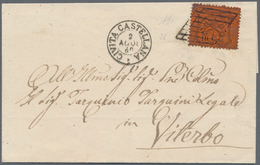 CIVITA CASTELLANA
2
AGO
68
All'Illmo Sig
Il Sig Tarquinio Tarquini Legale
in
Viterbo